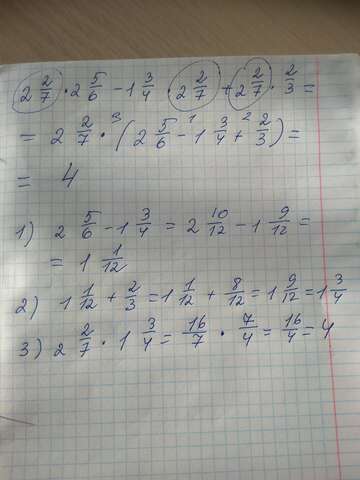 2 2/7 · 2 5/6 - 1 3/4 · 2 2/7 + 2 2/7 · 2/3 =
= 2 2/7 ·³ (2 5/6 -¹ 1 3/4 +² 2/3) =
= 4
1) 2 5/6 - 1 3/4 = 2 10/12 - 1 9/12 =
= 1 1/12
2) 1 1/12 + 2/3 = 1 1/12 + 8/12 = 1 9/12 = 1 3/4
3) 2 2/7 · 1 3/4 = 16/7 · 7/4 = 16/4 = 4